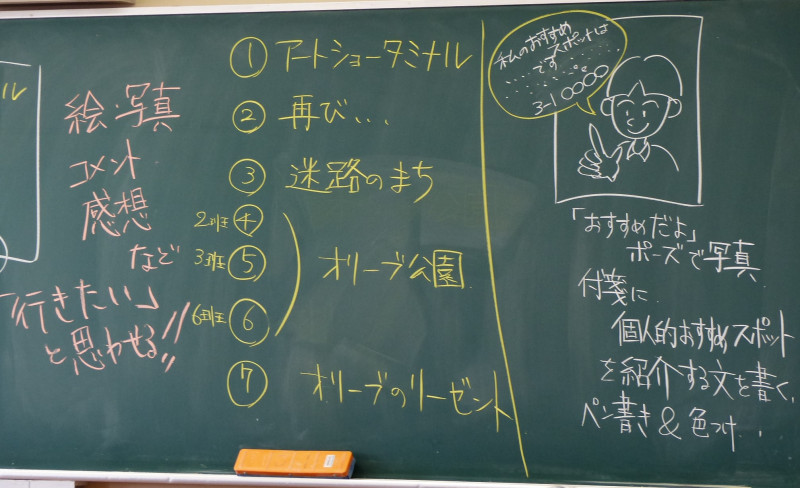 ル
絵・写真
コメント
感想
など
「行きたい」
と思わせる!!
① アートショーターミナル
② 再び...
③ 迷路のまち
2班 ④
3班 ⑤ オリーブ公園
6班 ⑥
⑦ オリーブのリーゼント
私のおすすめ
スポットは
です
3-1 〇〇〇〇
「おすすめだよ」
ポーズで写真
付箋に
個人的おすすめスポット
を紹介する文を書く。
ペン書き&色つけ。